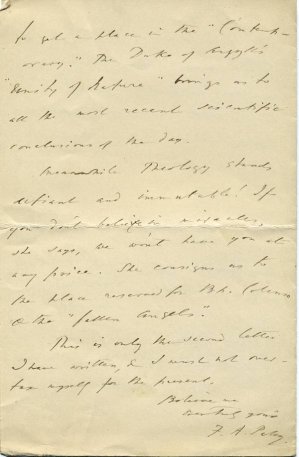 to get a place in the "Contemp-
orary." The Duke of Argyll's
"Unity of Nature" brings us to
all the most recent scientific
conclusions of the day.
Meanwhile Theology stands
defiant and immutable! If
you don't believe in miracles,
she says, we won't have you at
any price. She consigns us to
the place reserved for Bp. Colenso
& the "fallen angels".
This is only the second letter
I have written, & I must not over-
tax myself for the present.
Believe me
yours
F. A. Paley.